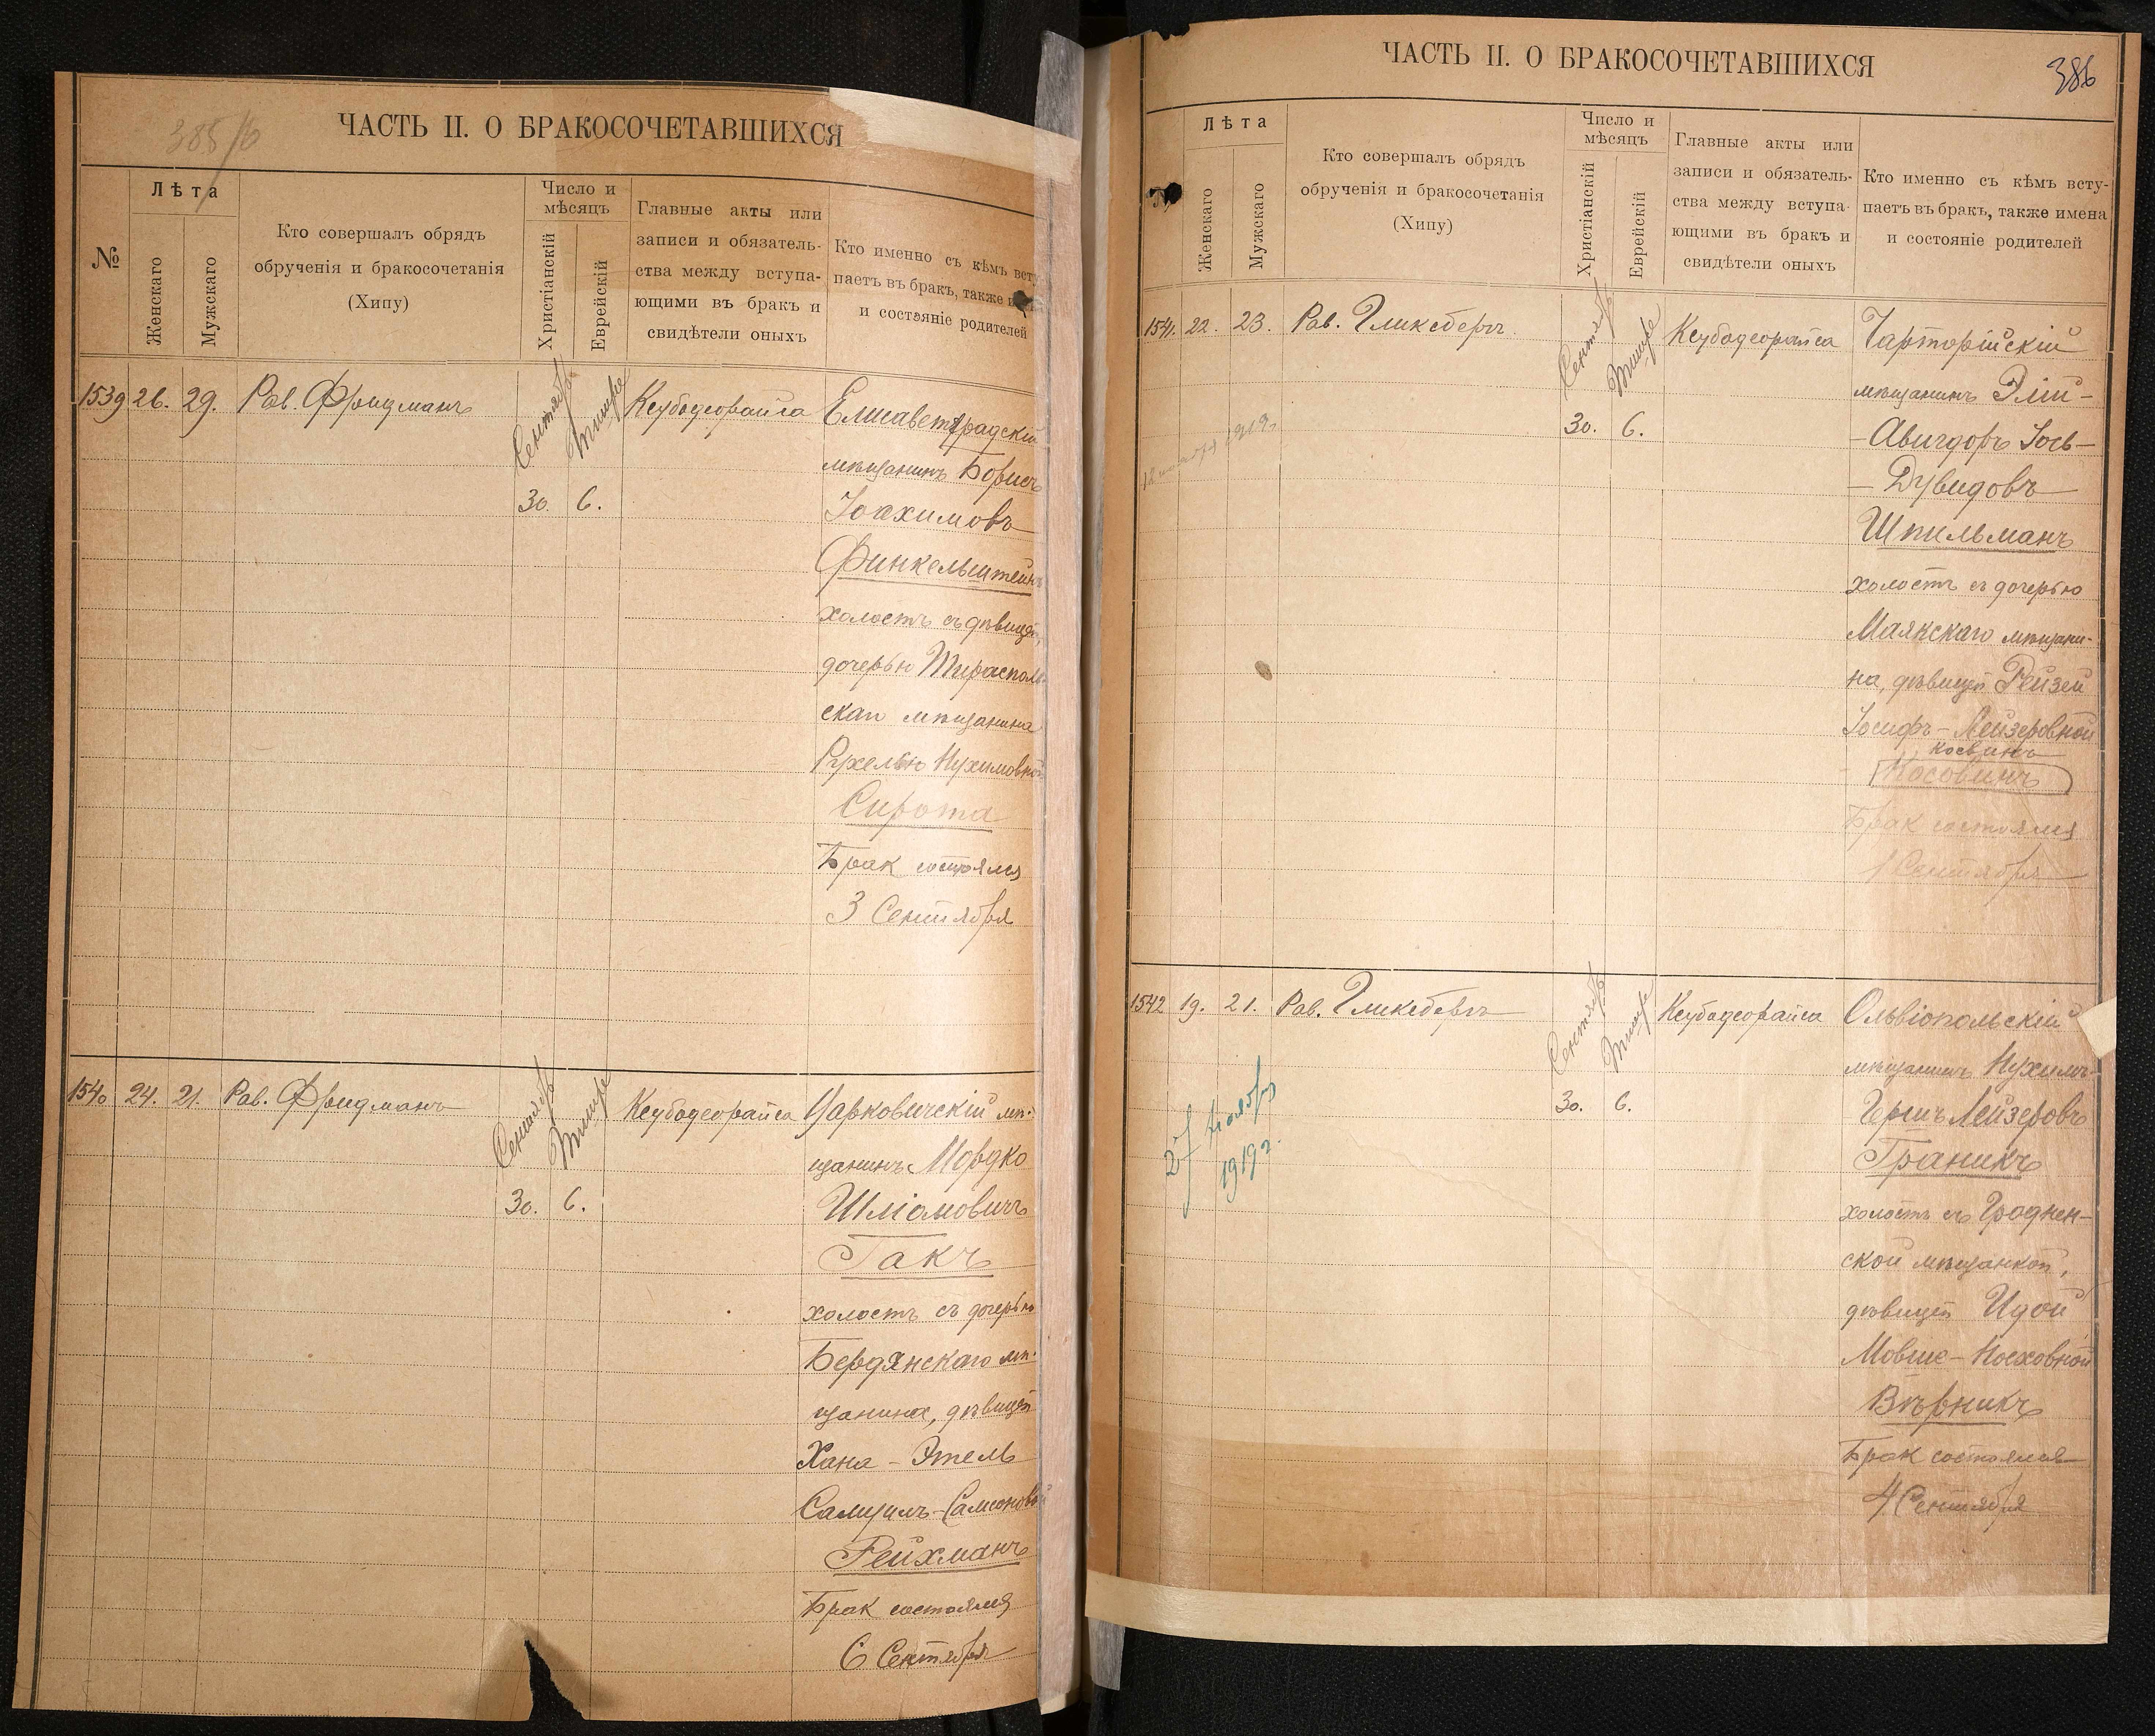 385/б
ЧАСТЬ II. О БРАКОСОЧЕТАВШИХСЯ
№
Лѣта
Женскаго
Мужскаго
Кто совершалъ обрядъ
обрученія и бракосочетанія
(Хипу)
Число и
мѣсяцъ
Христіанскій
Еврейскій
Главные акты или
записи и обязатель-
ства между вступа-
ющими въ бракъ и
свидѣтели оныхъ
Кто именно съ кѣмъ всту
паетъ въ бракъ, также и
и состояніе родителей
1539 26. 29. Рав. Фридманъ
Сентябрь
Тишре
30. 6.
Кеубодеорайса
Елисаветградскій
мѣщанинъ Борисъ
Іоахимовъ
Финкельштейнъ
холостъ съ дѣвицей,
дочерью Тирасполь-
скаго мѣщанина
Рухелью Нухимовной
Сирота
Брак состоялся
3 Сентября
1540 24. 21. Рав. Фридманъ
Сентябрь
Тишре
30. 6.
Кеубодеорайса
Царковичскій мѣ-
щанинъ Мордко
Шліомовичъ
Гакъ
холостъ съ дочерью
Бердянскаго мѣ-
щанина, дѣвицей
Хана - Этель
Самуилъ-Самсоновой
Рейхманъ
Брак состоялся
6 Сентября
ЧАСТЬ II. О БРАКОСОЧЕТАВШИХСЯ
386
Лѣта
Женскаго
Мужскаго
Кто совершалъ обрядъ
обрученія и бракосочетанія
(Хипу)
Число и
мѣсяцъ
Христіанскій
Еврейскій
Главные акты или
записи и обязатель-
ства между вступа-
ющими въ бракъ и
свидѣтели оныхъ
Кто именно съ кѣмъ всту-
паетъ въ бракъ, также имена
и состояніе родителей
1541. 22. 23. Рав. Гликсбергъ
12 ноября 1919.
Сентябрь
Тишре
30. 6.
Кеубодеорайса
Чарторійскій
мѣщанинъ Элій-
-Авигдоръ Іось-
- Дувидовъ
Шпильманъ
холостъ съ дочерью
Маякскаго мѣщани-
на, дѣвицей Рейзей
Іосифъ-Лейзеровной
Косвинъ
Косовинъ
Брак состоялся
1 Сентября
1542 19. 21. Рав. Гликсбергъ
27 Ноября
1919г.
Сентябрь
Тишре
30. 6.
Кеубодеорайса
Ольвіопольскій
мѣщанинъ Нухимъ-
Гершъ Лейзеровъ
Граникъ
холостъ съ Гроднен-
ской мѣщанкой,
дѣвицей Идой
Мовше-Носховной
Вѣрникъ
Брак состоялся
4 Сентября